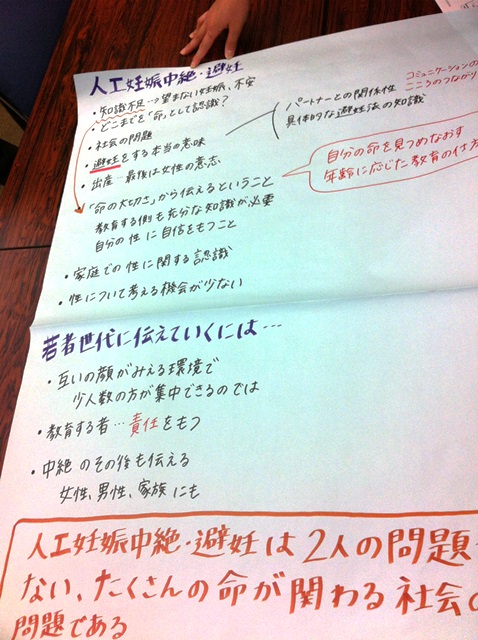 人工妊娠中絶・避妊
・知識不足→望まない妊娠、不安
・どこまでを「命」として認識?
・社会の問題
・避妊をする本当の意味
・出産…最後は女性の意志
「命の大切さ」から伝えるということ
教育する側も充分な知識が必要
自分の性に自信をもつこと
・家庭での性に関する認識
・性について考える機会が少ない
パートナーとの関係性
具体的な避妊法の知識
コミュニケーションの
こころのつながり
自分の命を見つめなおす
年齢に応じた教育の仕方
若者世代に伝えていくには…
・互いの顔がみえる環境で
少人数の方が集中できるのでは
・教育する者…責任をもつ
・中絶のその後も伝える
女性、男性、家族にも
人工妊娠中絶・避妊は2人の問題
ない、たくさんの命が関わる社会の
問題である